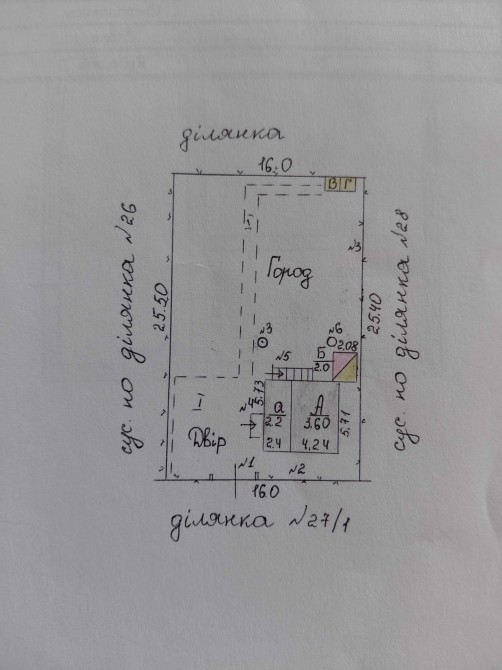 ділянка
16.0
В Г
І
№3
Город
сус. по ділянка №26
25.50
25.40
сус. по ділянка №28
№3
№6
2.08
Б
2.0
№5
5.73
№4
а
2.2
2.4
А
3.60
4.24
5.71
І
Двір
№1
№2
16.0
ділянка №27/1